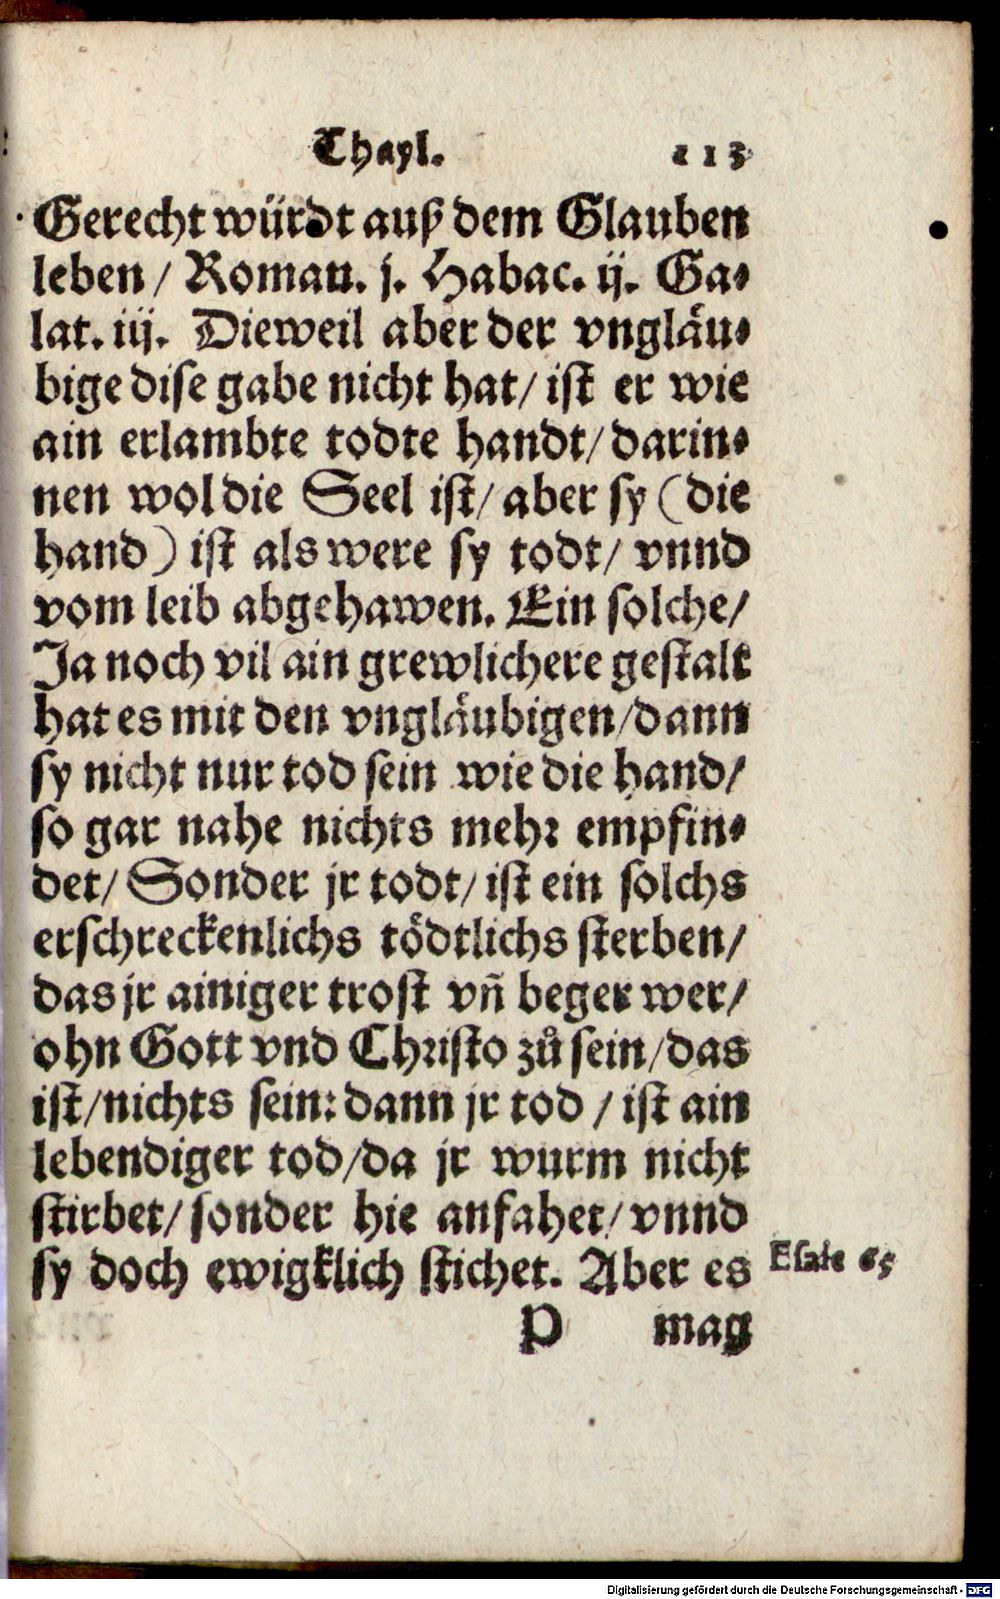 Thayl. 113
Gerecht würdt auß dem Glauben
leben / Roman. j. Habac. ij. Ga-
lat. iij. Dieweil aber der vngläu-
bige dise gabe nicht hat / ist er wie
ain erlambte todte handt / darin-
nen wol die Seel ist / aber sy (die
hand) ist als were sy todt / vnnd
vom leib abgehawen. Ein solche /
Ja noch vil ain grewlichere gestalt
hat es mit den vngläubigen / dann
sy nicht nur tod sein wie die hand /
so gar nahe nichts mehr empfin-
det / Sonder jr todt / ist ein solchs
erschreckenlichs tödtlichs sterben /
das jr ainiger trost vñ beger wer /
ohn Gott vnd Christo zů sein / das
ist / nichts sein: dann jr tod / ist ain
lebendiger tod / da jr wurm nicht
stirbet / sonder hie anfahet / vnnd
sy doch ewigklich stichet. Aber es
Esaie 65
P mag
Digitalisierung gefördert durch die Deutsche Forschungsgemeinschaft - DFG